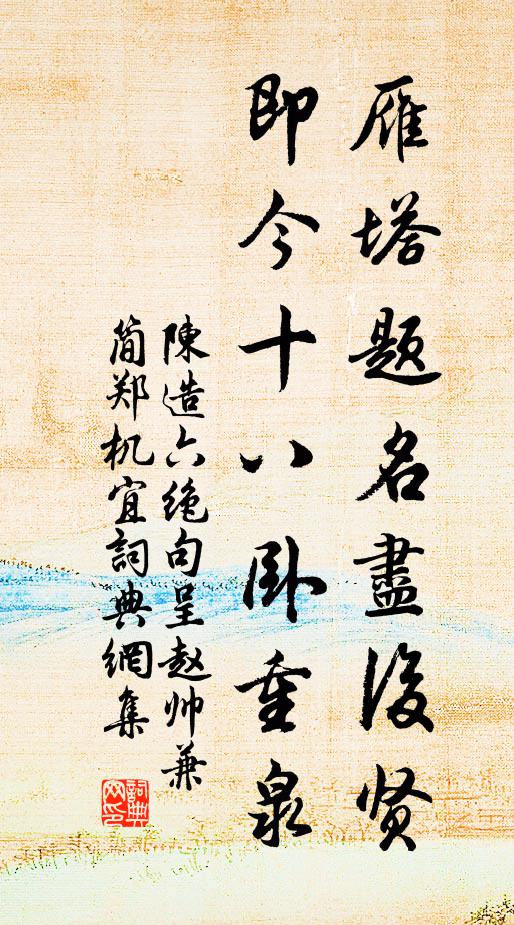 雁塔題名盡後贤
即今十八卧重泉
陳造六绝句呈赵帅兼
简郑机宜詞典網集
詞典网印